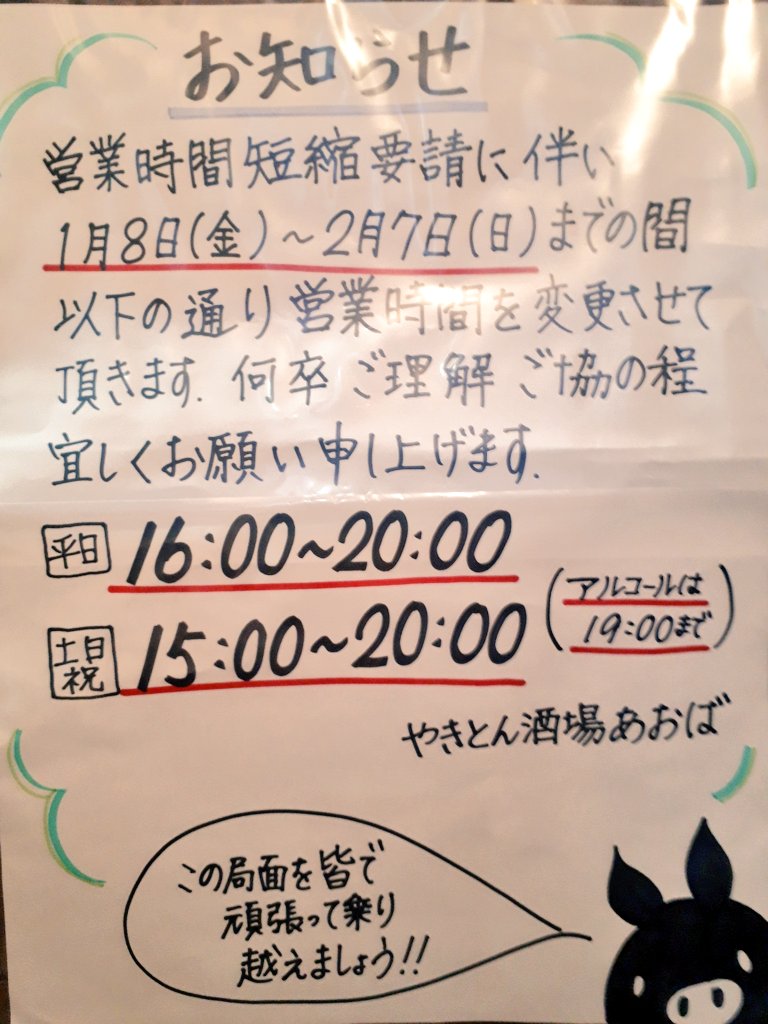 お知らせ
営業時間短縮要請に伴い
1月8日(金)～2月7日(日)までの間
以下の通り営業時間を変更させて
頂きます. 何卒ご理解ご協の程
宜しくお願い申し上げます.
平日 16:00～20:00
土日祝 15:00～20:00
(アルコールは
19:00まで)
やきとん酒場あおば
この局面を皆で
頑張って乗り
越えましょう!!